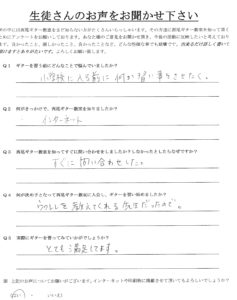 生徒さんのお声をお聞かせ下さい
Q1 ギターを習う前にどんなことで悩んでいましたか?
小学校に入る前に何か習い事をさせたく。
Q2 何がきっかけで、西尾ギター教室を知りましたか?
・インターネット
Q3 西尾ギター教室を知ってすぐに問い合わせをしましたか?しなかったとしたらなぜですか?
すぐに問い合わせした。
Q4 何が決め手となって西尾ギター教室に入会し、ギターを習い始めましたか?
ウクレレを教えてくれる先生だったので。
Q5 実際にギターを習ってみていかがでしょうか?
とても満足してます。
はい ・ いいえ